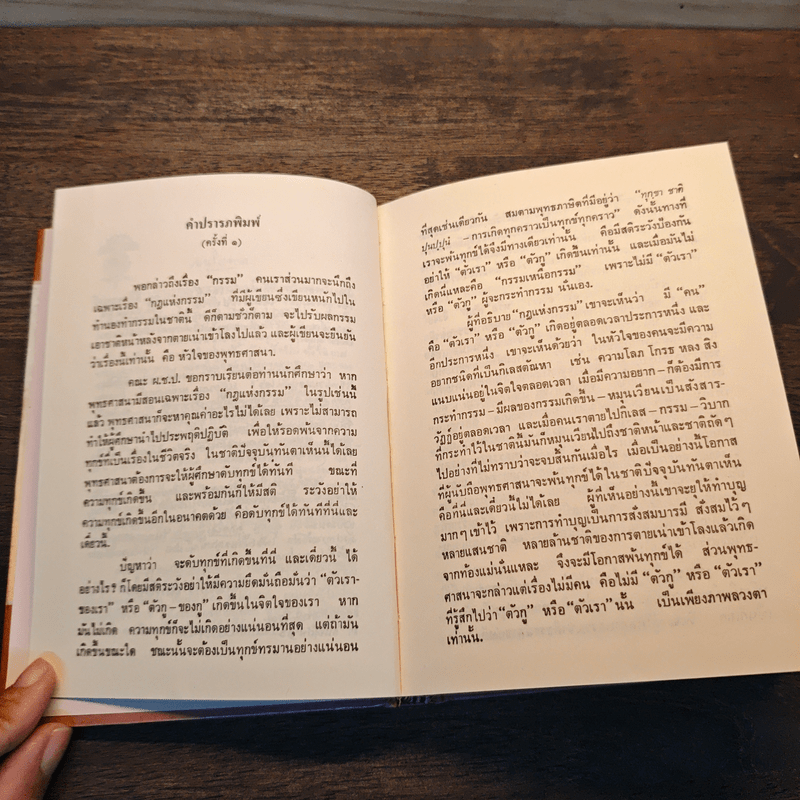 คำปรารภพิมพ์
(ครั้งที่ ๑)
พอกล่าวถึงเรื่อง "กรรม" คนเราส่วนมากจะนึกถึง
เฉพาะเรื่อง "กฎแห่งกรรม" ที่มีผู้เขียนซึ่งเขียนหนักไปใน
ทำนองทำกรรมในชาตินี้ ดีก็ตามชั่วก็ตาม จะไปรับผลกรรม
เอาชาติหน้าหลังจากตายเน่าเข้าโลงไปแล้ว และผู้เขียนจะยืนยัน
ว่าเรื่องนี้เท่านั้น คือ หัวใจของพุทธศาสนา.
คณะ ผ.ช.ป. ขอกราบเรียนต่อท่านนักศึกษาว่า หาก
พุทธศาสนามีสอนเฉพาะเรื่อง "กฎแห่งกรรม" ในรูปเช่นนี้
แล้ว พุทธศาสนาก็จะหาคุณค่าอะไรไม่ได้เลย เพราะไม่สามารถ
ทำให้ผู้ศึกษานำไปประพฤติปฏิบัติ เพื่อให้รอดพ้นจากความ
ทุกข์ที่เป็นเรื่องในชีวิตจริง ในชาติปัจจุบันทันตาเห็นนี้ได้เลย
พุทธศาสนาต้องการจะให้ผู้ศึกษาดับทุกข์ได้ทันที ขณะที่
ความทุกข์เกิดขึ้น และพร้อมกันก็ให้มีสติ ระวังอย่าให้
ความทุกข์เกิดขึ้นอีกในอนาคตด้วย คือดับทุกข์ได้ทันทีที่นี่และ
เดี๋ยวนี้.
ปัญหาว่า จะดับทุกข์ที่เกิดขึ้นที่นี่ และเดี๋ยวนี้ ได้
อย่างไร? ก็โดยมีสติระวังอย่าให้มีความยึดมั่นถือมั่นว่า "ตัวเรา-
ของเรา" หรือ "ตัวกู – ของกู" เกิดขึ้นในจิตใจของเรา หาก
มันไม่เกิด ความทุกข์ก็จะไม่เกิดอย่างแน่นอนที่สุด แต่ถ้ามัน
เกิดขึ้นขณะใด ขณะนั้นจะต้องเป็นทุกข์ทรมานอย่างแน่นอน
ที่สุดเช่นเดียวกัน สมตามพุทธภาษิตที่มีอยู่ว่า "ทุกฺขา ชาติ
ปุนปฺปุนํ – การเกิดทุกคราวเป็นทุกข์ทุกคราว" ดังนั้นทางที่
เราจะพ้นทุกข์ได้จึงมีทางเดียวเท่านั้น คือมีสติระวังป้องกัน
อย่าให้ "ตัวเรา" หรือ "ตัวกู" เกิดขึ้นเท่านั้น และเมื่อมันไม่
เกิดนี่แหละคือ "กรรมเหนือกรรม" เพราะไม่มี "ตัวเรา"
หรือ "ตัวกู" ผู้จะกระทำกรรม นั่นเอง.
ผู้ที่อธิบาย "กฎแห่งกรรม" เขาจะเห็นว่า มี "คน"
คือ "ตัวเรา" หรือ "ตัวกู" เกิดอยู่ตลอดเวลาประการหนึ่ง และ
อีกประการหนึ่ง เขาจะเห็นด้วยว่า ในหัวใจของคนจะมีความ
อยากชนิดที่เป็นกิเลสตัณหา เช่น ความโลภ โกรธ หลง สิง
แนบแน่นอยู่ในจิตใจตลอดเวลา เมื่อมีความอยาก – ก็ต้องมีการ
กระทำกรรม – มีผลของกรรมเกิดขึ้น – หมุนเวียนเป็นสังสาร-
วัฏฏ์อยู่ตลอดเวลา และเมื่อคนเราตายไปกิเลส – กรรม – วิบาก
ที่กระทำไว้ในชาตินี้มันก็หมุนเวียนไปถึงชาติหน้าและชาติถัดๆ
ไปอย่างที่ไม่ทราบว่าจะจบสิ้นกันเมื่อไร เมื่อเป็นอย่างนี้โอกาส
ที่ผู้นับถือพุทธศาสนาจะพ้นทุกข์ได้ในชาติปัจจุบันทันตาเห็น
คือที่นี่และเดี๋ยวนี้ไม่ได้เลย ผู้ที่เห็นอย่างนี้เขาจะยุให้ทำบุญ
มากๆ เข้าไว้ เพราะการทำบุญเป็นการสั่งสมบารมี สั่งสมไว้ๆ
หลายแสนชาติ หลายล้านชาติของการตายเน่าเข้าโลงแล้วเกิด
จากท้องแม่นั่นแหละ จึงจะมีโอกาสพ้นทุกข์ได้ ส่วนพุทธ-
ศาสนาจะกล่าวแต่เรื่องไม่มีคน คือไม่มี "ตัวกู" หรือ "ตัวเรา"
ที่รู้สึกไปว่า "ตัวกู" หรือ "ตัวเรา" นั้น เป็นเพียงภาพลวงตา
เท่านั้น.